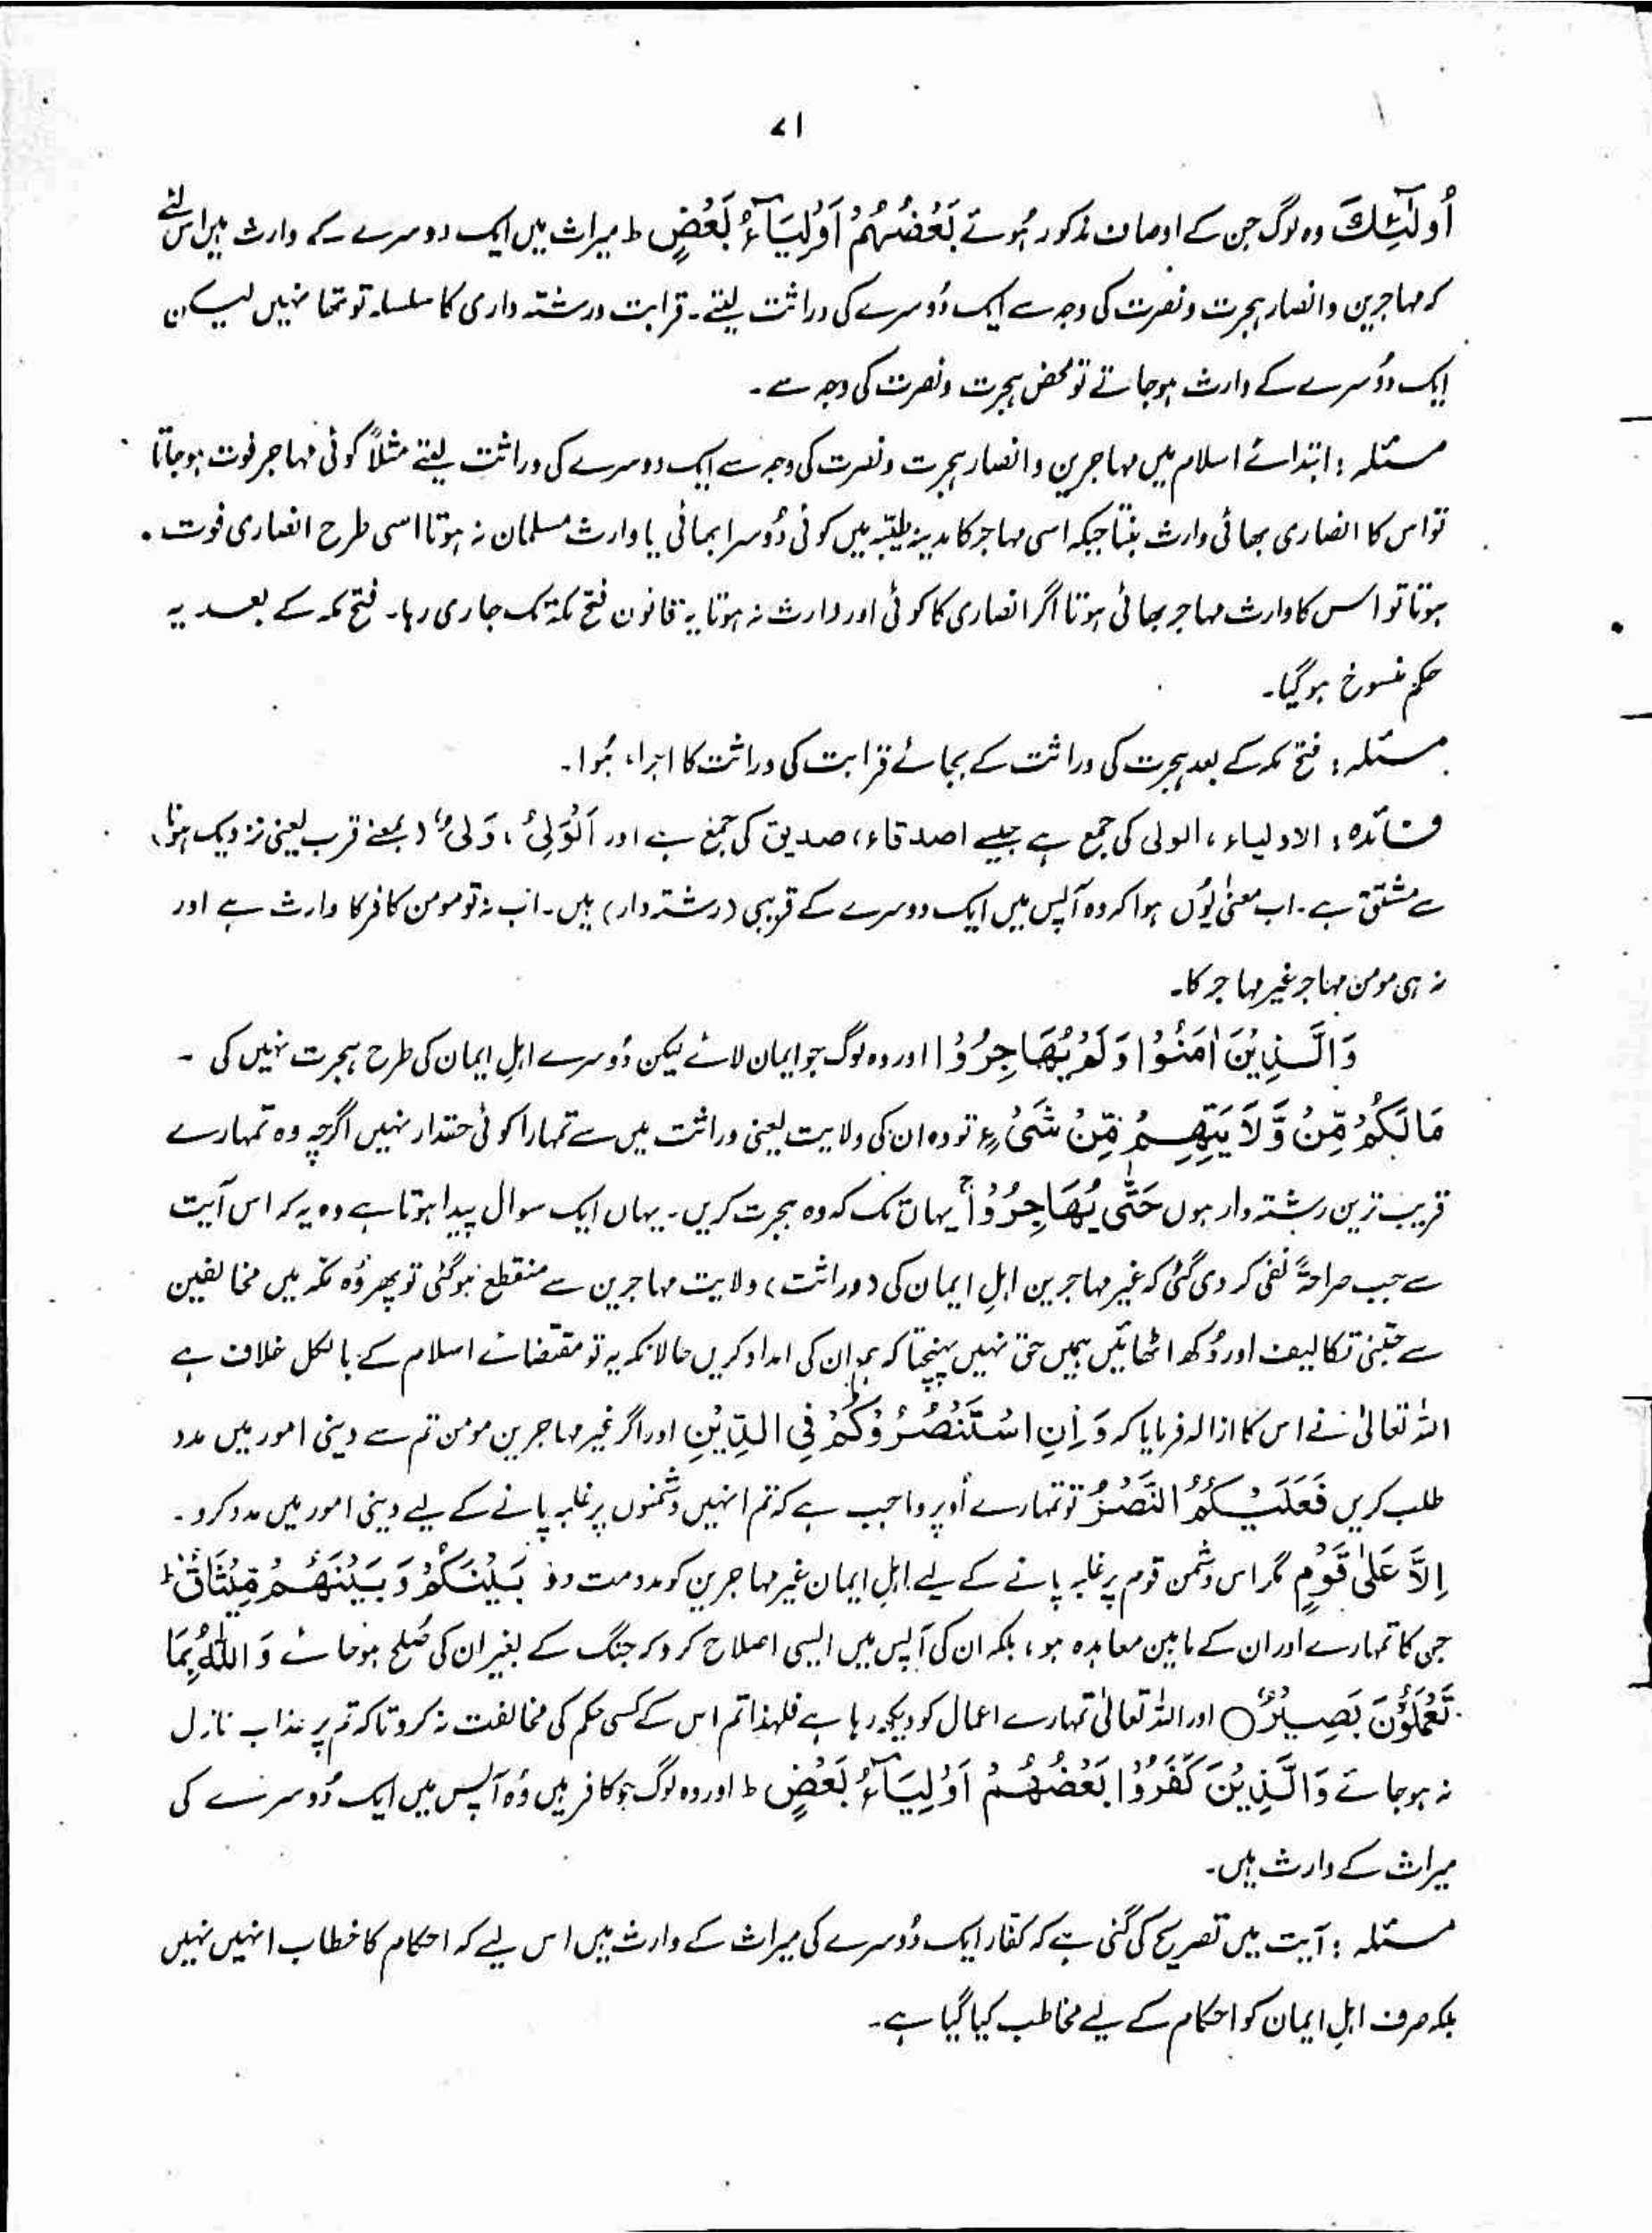 ۷۱
أُولٰٓئِكَ وہ لوگ جن کے اوصاف مذکور ہُوئے بَعْضُهُمْ اَوْلِيَآءُ بَعْضٍ ط میراث میں ایک دوسرے کے وارث ہیں اس لئے
کہ مہاجرین و انصار ہجرت و نصرت کی وجہ سے ایک دُوسرے کی وراثت لیتے۔ قرابت و رشتہ داری کا سلسلہ تو تھا نہیں لیکن
ایک دُوسرے کے وارث ہوجاتے تو محض ہجرت و نصرت کی وجہ سے۔
مسئلہ : ابتدائے اسلام میں مہاجرین و انصار ہجرت و نصرت کی وجہ سے ایک دوسرے کی وراثت لیتے مثلاً کوئی مہاجر فوت ہوجاتا
تو اس کا انصاری بھائی وارث بنتا جبکہ اسی مہاجر کا مدینہ طیّبہ میں کوئی دُوسرا بھائی یا وارث مسلمان نہ ہوتا اسی طرح انصاری فوت
ہوتا تو اس کا وارث مہاجر بھائی ہوتا اگر انصاری کا کوئی اور وارث نہ ہوتا یہ قانون فتح مکّہ تک جاری رہا۔ فتح مکہ کے بعد یہ
حکم منسوخ ہوگیا۔
مسئلہ : فتح مکہ کے بعد ہجرت کی وراثت کے بجائے قرابت کی وراثت کا اجراء ہُوا۔
فائدہ : الاولیاء ، الولی کی جمع ہے جیسے اصدقاء ، صدیق کی جمع ہے اور اَلْوَلِیُّ ، وَلْیٌ (بمعنے قرب یعنی نزدیک ہونا)
سے مشتق ہے۔ اب معنیٰ یُوں ہوا کہ وہ آپس میں ایک دوسرے کے قریبی (رشتہ دار) ہیں۔ اب نہ تو مومن کافر کا وارث ہے اور
نہ ہی مومن مہاجر غیر مہاجر کا۔
وَالَّذِيْنَ اٰمَنُوْا وَلَمْ يُهَاجِرُوْا اور وہ لوگ جو ایمان لائے لیکن دُوسرے اہلِ ایمان کی طرح ہجرت نہیں کی ۔
مَالَكُمْ مِّنْ وَّلَايَتِهِمْ مِّنْ شَيْءٍ تو وہ ان کی ولایت یعنی وراثت میں سے تمہارا کوئی حقدار نہیں اگرچہ وہ تمہارے
قریب ترین رشتہ دار ہوں حَتّٰى يُهَاجِرُوْا ج یہاں تک کہ وہ ہجرت کریں۔ یہاں ایک سوال پیدا ہوتا ہے وہ یہ کہ اس آیت
سے جب صراحۃً نفی کر دی گئی کہ غیر مہاجرین اہلِ ایمان کی (وراثت) ولایت مہاجرین سے منقطع ہوگئی تو پھر وُہ مکہ میں مخالفین
سے جتنی تکالیف اور دُکھ اٹھائیں ہمیں حق نہیں پہنچتا کہ ہم ان کی امداد کریں حالانکہ یہ تو مقتضائے اسلام کے بالکل خلاف ہے
اللہ تعالیٰ نے اس کا ازالہ فرمایا کہ وَاِنِ اسْتَنْصَرُوْكُمْ فِي الدِّيْنِ اور اگر غیر مہاجرین مومن تم سے دینی امور میں مدد
طلب کریں فَعَلَيْكُمُ النَّصْرُ تو تمہارے اُوپر واجب ہے کہ تم انہیں دشمنوں پر غلبہ پانے کے لیے دینی امور میں مدد کرو۔
اِلَّا عَلٰى قَوْمٍ مگر اس دشمن قوم پر غلبہ پانے کے لیے اہلِ ایمان غیر مہاجرین کو مدد مت دو بَيْنَكُمْ وَبَيْنَهُمْ مِّيْثَاقٌ ط
جن کا تمہارے اور ان کے مابین معاہدہ ہو ، بلکہ ان کی آپس میں ایسی اصلاح کردو کہ جنگ کے بغیر ان کی صُلح ہوجائے وَاللّٰهُ بِمَا
تَعْمَلُوْنَ بَصِيْرٌ ○ اور اللہ تعالیٰ تمہارے اعمال کو دیکھ رہا ہے فلہٰذا تم اس کے کسی حکم کی مخالفت نہ کرو تاکہ تم پر عذاب نازل
نہ ہوجائے وَالَّذِيْنَ كَفَرُوْا بَعْضُهُمْ اَوْلِيَآءُ بَعْضٍ ط اور وہ لوگ جو کافر ہیں وُہ آپس میں ایک دُوسرے کی
میراث کے وارث ہیں۔
مسئلہ : آیت میں تصریح کی گئی ہے کہ کفّار ایک دُوسرے کی میراث کے وارث ہیں اس لیے کہ احکام کا خطاب انہیں نہیں
بلکہ صرف اہلِ ایمان کو احکام کے لیے مخاطب کیا گیا ہے۔